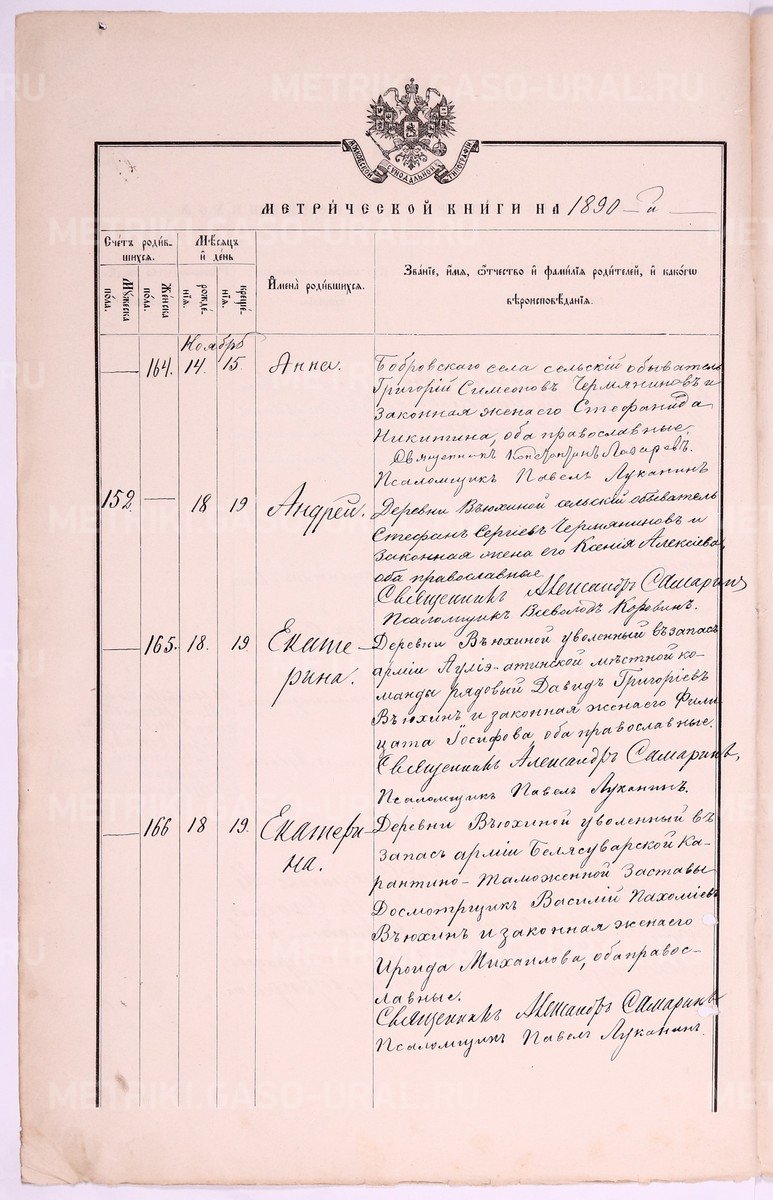 METRIKI.GASO-URAL.RU
МОСКОВСКОЙ СѴНОДАЛЬНОЙ ТИПОГРАФІИ
МЕТРИ́ЧЕСКОЙ КНИ́ГИ НА 1890 й
Сче́тъ роди́в-
шихся.
Мѣ́сяцъ
и҆ де́нь
Мꙋжеска
по́ла.
Же́нска
по́ла.
рожде́-
нїѧ.
креще́-
нїѧ.
И҆мена̀ роди́вшихся.
Зва́нїе, и҆́мѧ, ѻ҆́тчество и҆ фами́лїѧ роди́телей, и҆ како́гѡ
вѣроисповѣ́данїѧ.
Ноябрь
164. 14. 15. Анна.
Бобровскаго села сельскій обыватель
Григорій Симеоновъ Чермяниновъ и
законная жена его Стефанида
Никитина, оба православные.
Священникъ Константинъ Лазаревъ.
Псаломщикъ Павелъ Луканинъ
152. 18 19 Андрей.
Деревни Вьюхиной сельскій обыватель
Стефанъ Сергіевъ Чермяниновъ и
законная жена его Ксенія Алексіева,
оба православные
Священникъ Александръ Самаринъ
Псаломщикъ Всеволодъ Коровинъ.
165. 18. 19 Екате-
рина.
Деревни Вьюхиной уволенный въ запасъ
арміи Ауліэ-атинской мѣстной ко-
манды рядовый Давидъ Григоріевъ
Вьюхинъ и законная жена его Фили
цата Іосифова оба православные.
Священникъ Александръ Самаринъ,
Псаломщикъ Павелъ Луканинъ.
166 18 19. Екатери-
на.
Деревни Вьюхиной уволенный въ
запасъ арміи Белясуварской Ка-
рантино-таможенной Заставы
Досмотрщикъ Василій Пахоміевъ
Вьюхинъ и законная жена его
Ироида Михаилова, оба правос-
лавные.
Священникъ Александръ Самаринъ
Псаломщикъ Павелъ Луканинъ.
METRIKI.GASO-URAL.RU